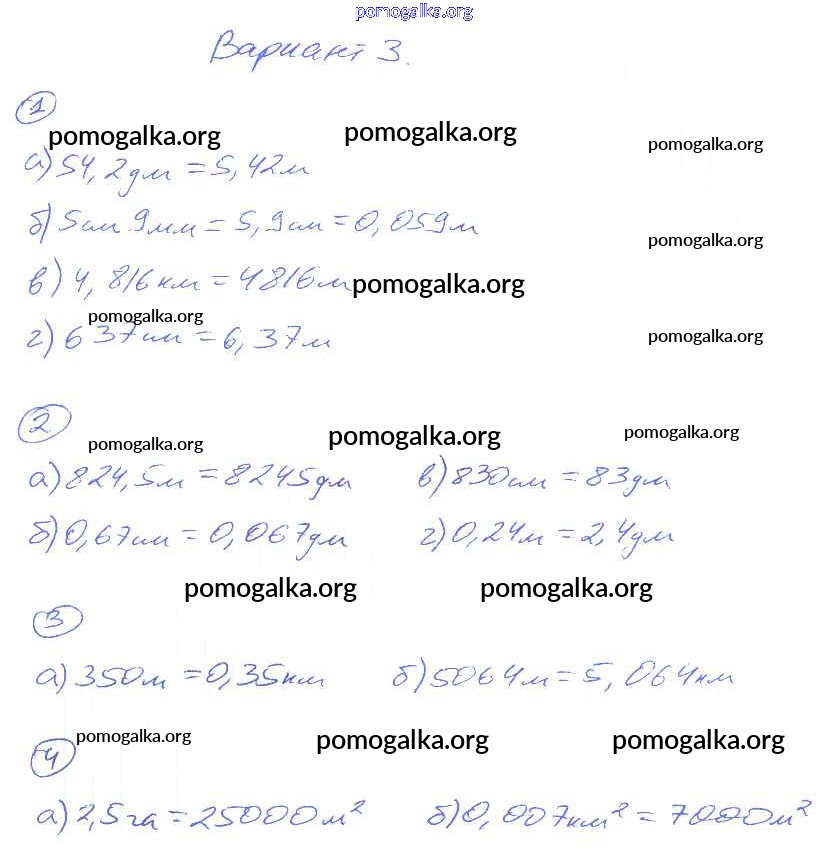 pomogalka.org
Вариант 3.
1
pomogalka.org pomogalka.org pomogalka.org
а) 54,2дм = 5,42м
б) 5см 9мм = 5,9см = 0,059м
pomogalka.org
в) 4,816км = 4816м
pomogalka.org
pomogalka.org
г) 637см = 6,37м
pomogalka.org
2
pomogalka.org pomogalka.org pomogalka.org
а) 824,5м = 8245дм в) 830см = 83дм
б) 0,67см = 0,067дм г) 0,24м = 2,4дм
pomogalka.org pomogalka.org
3
а) 350м = 0,35км б) 5064м = 5,064км
4
pomogalka.org pomogalka.org pomogalka.org
а) 2,5га = 25000м² б) 0,007км² = 7000м²